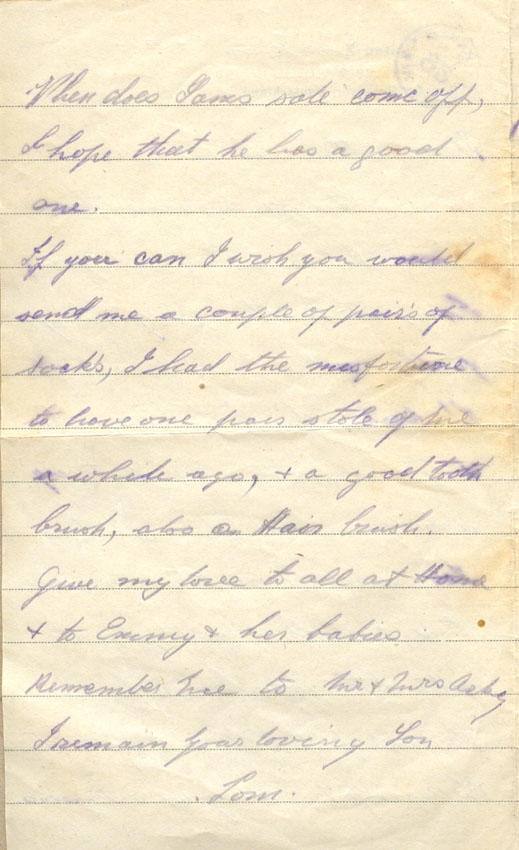 When does Sams sale come off,
I hope that he has a good
one.
If you can I wish you would
send me a couple of pair's of
sock's, I had the misfortune
to have one pair stole of me
a while ago, & a good tooth
brush, also a Hair brush.
Give my love to all at Home
& to Emmy & her babies.
Remember me to Mr & Mrs
I remain your loving Son
Tom.